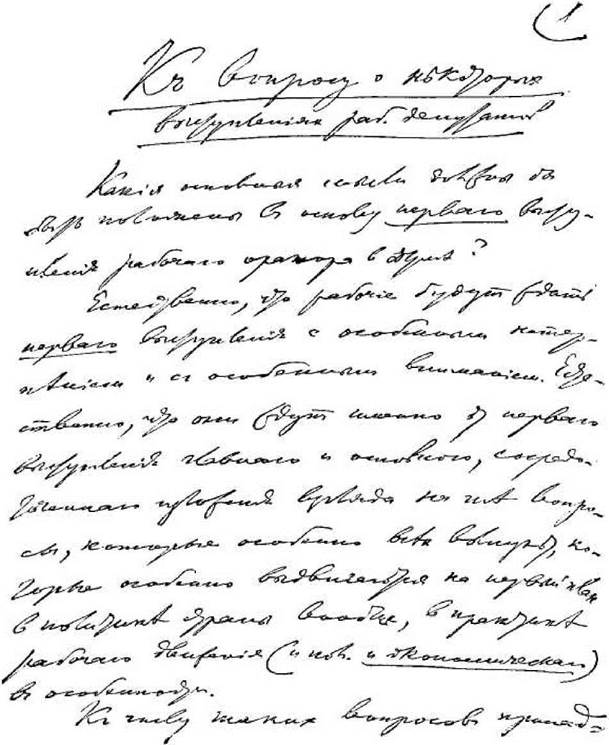 1
Къ вопросу о нѣкоторыхъ
выступленіяхъ раб. депутатовъ
Какія основныя мысли должны бы
быть положены въ основу перваго высту-
пленія рабочаго оратора в думѣ?
Естественно, что рабочіе будутъ ждать
перваго выступленія с особеннымъ нетер-
пѣніем и съ особеннымъ вниманіем. Есте-
ственно, что они ждут именно отъ перваго
выступленія главнаго и основного, сосредо-
точеннаго изложенія взгляда на тѣ вопро-
сы, которые особенно всѣхъ волнуютъ, ко-
торые особенно выдвигаются на первый план
в политикѣ страны вообще, в практикѣ
рабочаго движенія (и пол. и экономическаго)
въ особенности.
Къ числу таких вопросовъ принад-